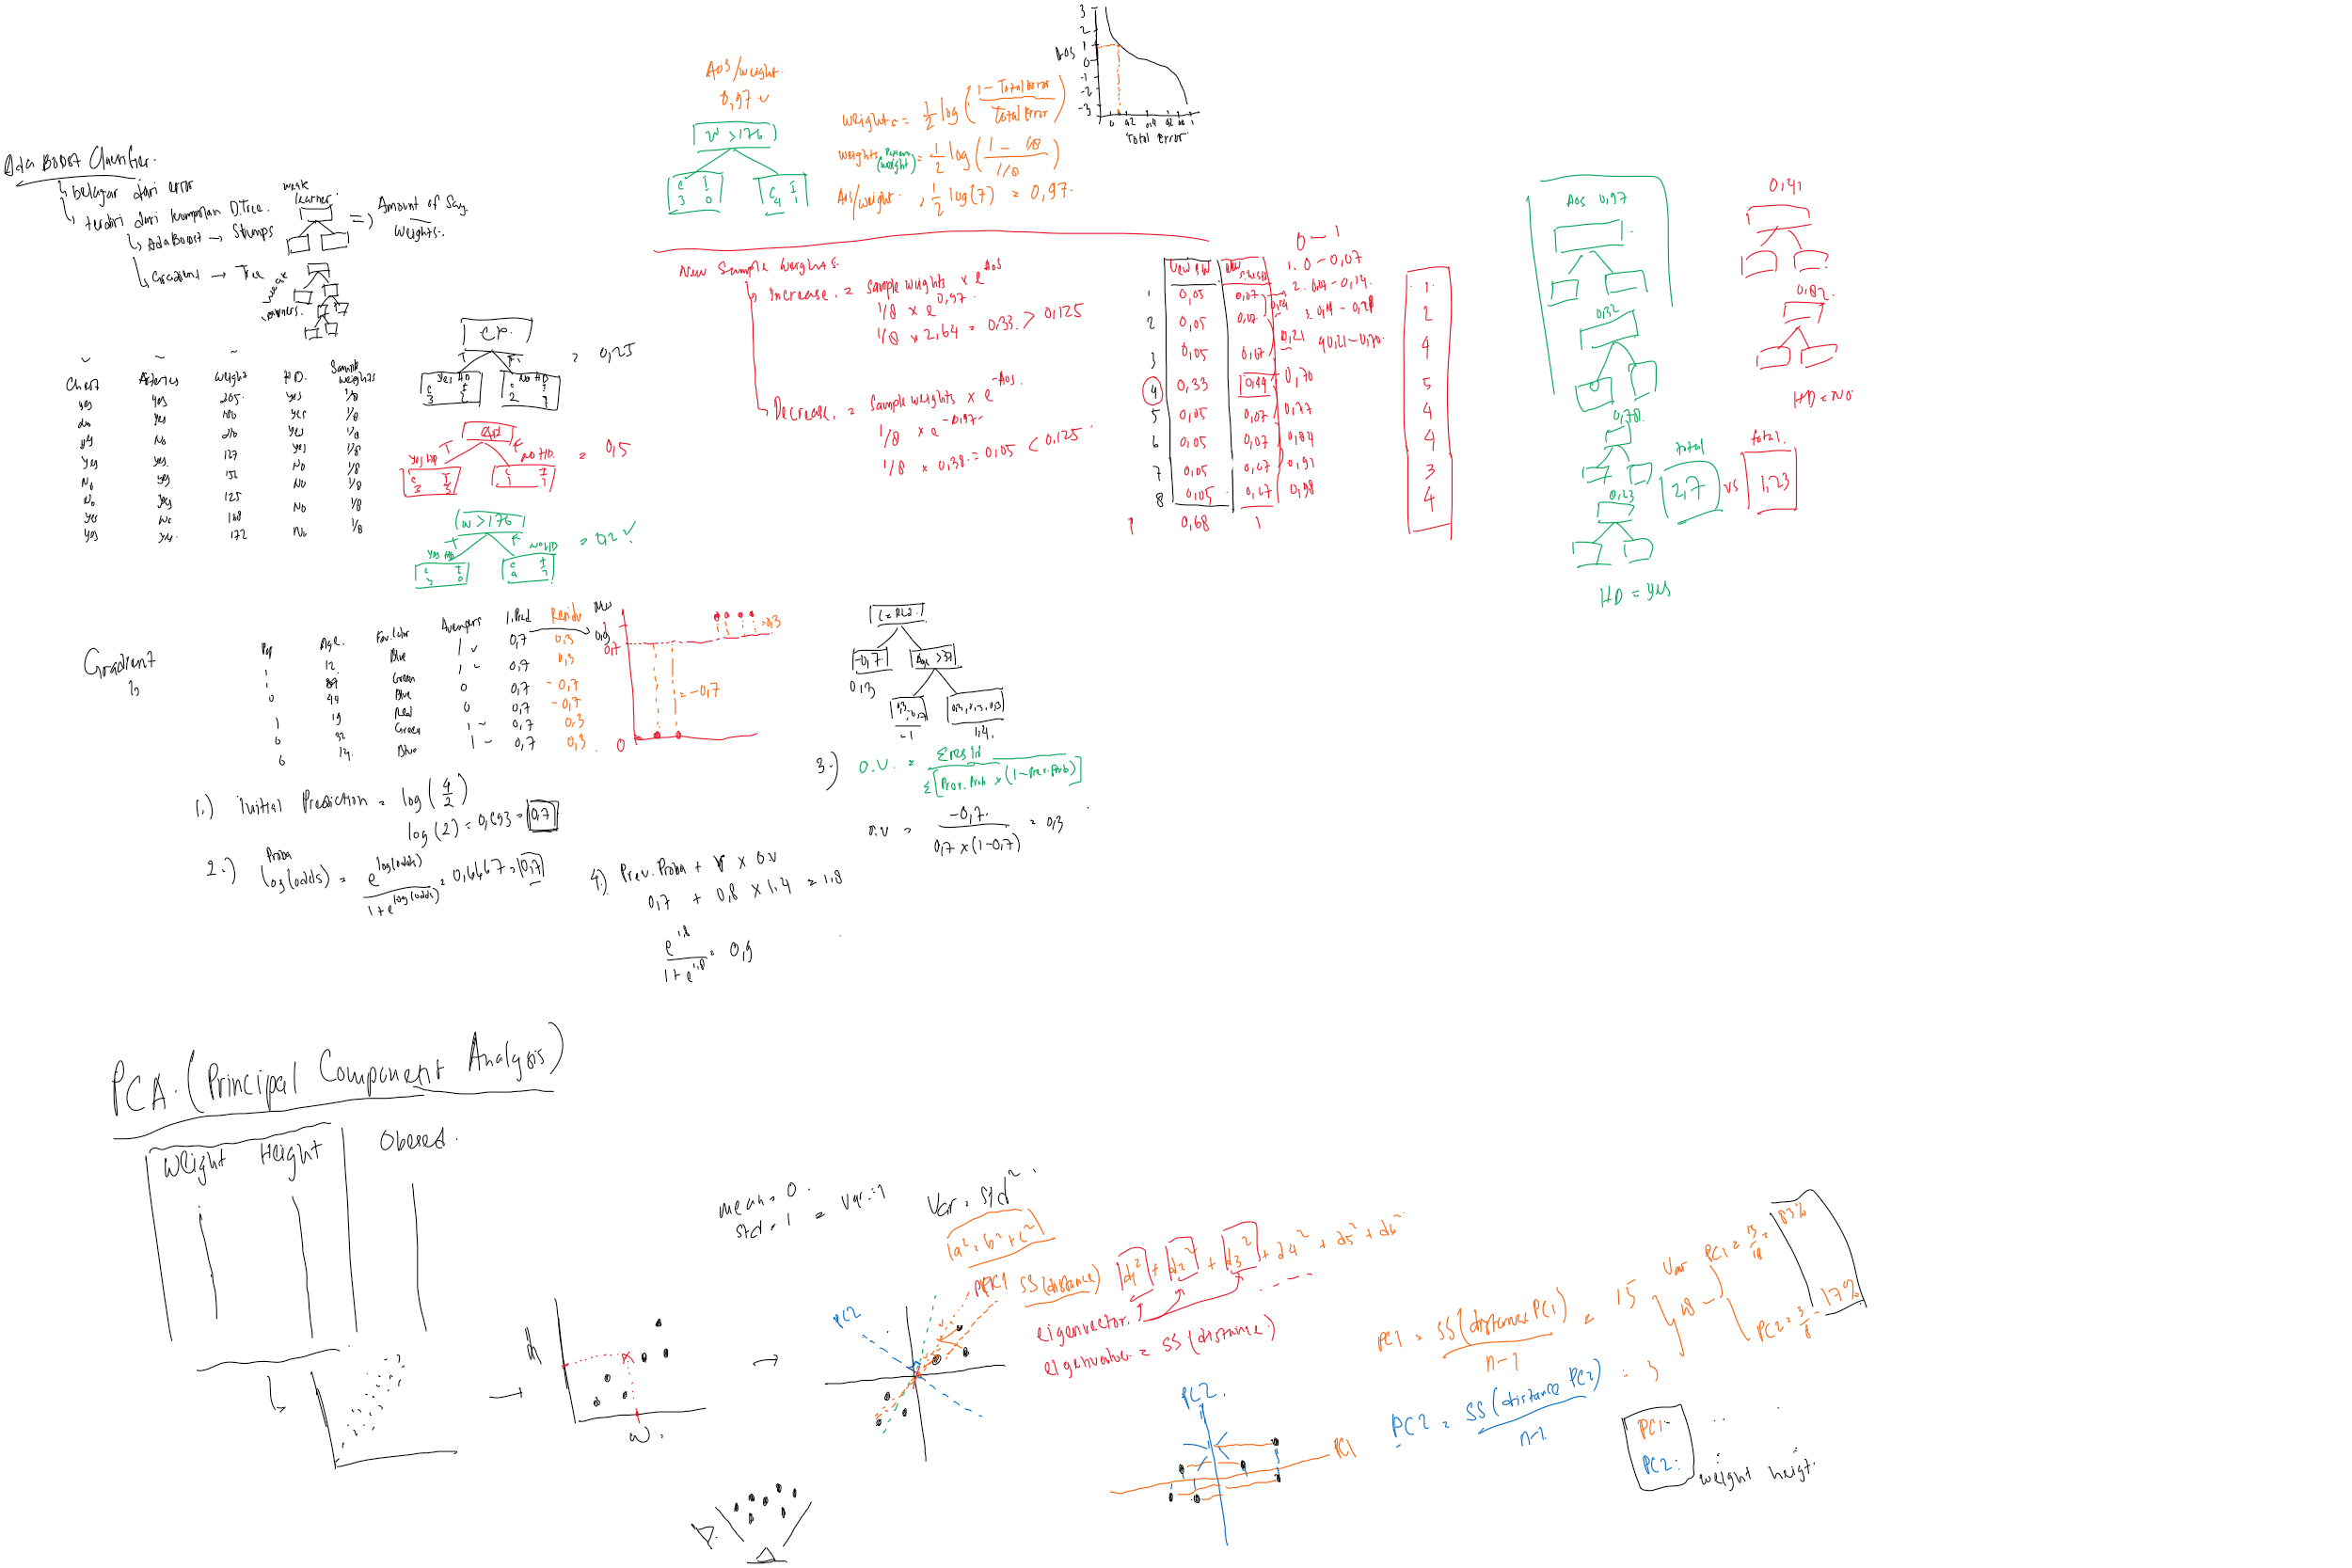 AdaBoost Classifier.
belajar dari error
terdiri dari kumpulan D.Tree.
AdaBoost → Stumps
Gradient → Tree
weak
learner
=> Amount of Say
Weights.
weak
learners.
Chest Arteries Weight H.D. Sample Weights
yes yes 205 yes 1/8
No yes 180 yes 1/8
yes No 210 yes 1/8
yes yes 167 yes 1/8
No yes 156 No 1/8
No yes 125 No 1/8
yes No 168 No 1/8
yes yes 172 No 1/8
C.P.
T F
Yes HD No HD
= 0,25
T F
Yes HD No HD
= 0,5
W > 176
T F
Yes HD No HD
C I C I
3 0 4 1
= 0,2 ✓
AoS/weight.
0,97
W > 176
C I C I
3 0 4 1
Weights = 1/2 log (1 - Total Error / Total Error)
Weights = 1/2 log (1 - 1/8 / 1/8)
AoS/weight = 1/2 log(7) = 0,97.
AoS
3
2
1
0
-1
-2
-3
Total Error
New Sample Weights
Increase = Sample weights x e^AoS
1/8 x e^0,97
1/8 x 2,64 = 0,33 > 0,125
Decrease = Sample weights x e^-AoS
1/8 x e^-0,97
1/8 x 0,38 = 0,05 < 0,125
0 — 1
New SW
1 0,05 0,07
2 0,05 0,07 0,14
3 0,05 0,07 0,21
4 0,33 0,49 0,70
5 0,05 0,07 0,77
6 0,05 0,07 0,84
7 0,05 0,07 0,91
8 0,05 0,07 0,98
0,68 1
1. 0 - 0,07
2. 0,07 - 0,14
3. 0,14 - 0,21
4. 0,21 - 0,70
1
2
4
5
4
4
3
4
AoS 0,97
0,32
0,78
0,23
HD = Yes
0,41
0,82
HD = No
total
2,7
vs
total
1,23
Gradient
Pop Age Fav.Color Avengers I.Pred Residu
1 12 Blue 1 0,7 0,3
1 87 Green 1 0,7 0,3
0 44 Blue 0 0,7 -0,7
1 19 Red 0 0,7 -0,7
0 32 Green 1 0,7 0,3
0 14 Blue 1 0,7 0,3
0,9
0,7
0
= 0,3
= -0,7
C = Red
-0,7
Age > 37
0,3, -0,7
0,3, 0,3, 0,3
-1
1,4
1.) Initial Prediction = log (4/2)
log(2) = 0,693 = 0,7
2.) Proba
Log(odds) = e^log(odds) / 1+e^log(odds) = 0,6667 = 0,7
3.) O.V. = Σresid / Σ[Prev.Prob x (1-Prev.Prob)]
O.V = -0,7 / 0,7 x (1-0,7) = 0,3
4.) Prev.Proba + γ x O.V
0,7 + 0,8 x 1,4 = 1,8
e^1,8 / 1+e^1,8 = 0,9
PCA. (Principal Component Analysis)
Weight Height Obesed.
h
w.
mean = 0
std = 1 = Var = 1
Var = Std²
a² = b² + c²
PC1 SS(distance) d1² + d2² + d3² + d4² + d5² + d6²
PC2
eigenvector.
eigenvalue = SS(distance)
PC2.
PC1
PC1 = SS(distance PC1) / n-1 = 15
PC2 = SS(distance PC2) / n-1 = 3
18
Var PC1 = 15/18 = 83%
PC2 = 3/18 = 17%
PC1.
PC2.
weight heigt.